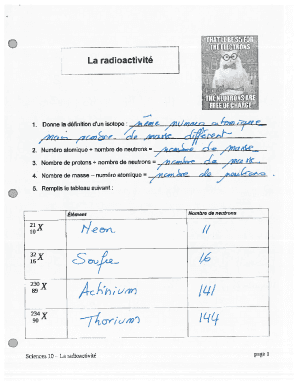 La radioactivité
THAT'LL BE $0 FOR
THE ELECTRONS
THE NEUTRONS ARE
FREE OF CHARGE
1. Donne la définition d'un isotope : même numéro atomique
mais nombre de masse différent
2. Numéro atomique + nombre de neutrons = nombre de masse
3. Nombre de protons + nombre de neutrons = nombre de masse
4. Nombre de masse – numéro atomique = nombre de neutrons
5. Remplis le tableau suivant :
Élément Nombre de neutrons
21 10 X Neon 11
32 16 X Soufre 16
230 89 X Actinium 141
234 90 X Thorium 144
Sciences 10 – La radioactivité page 1